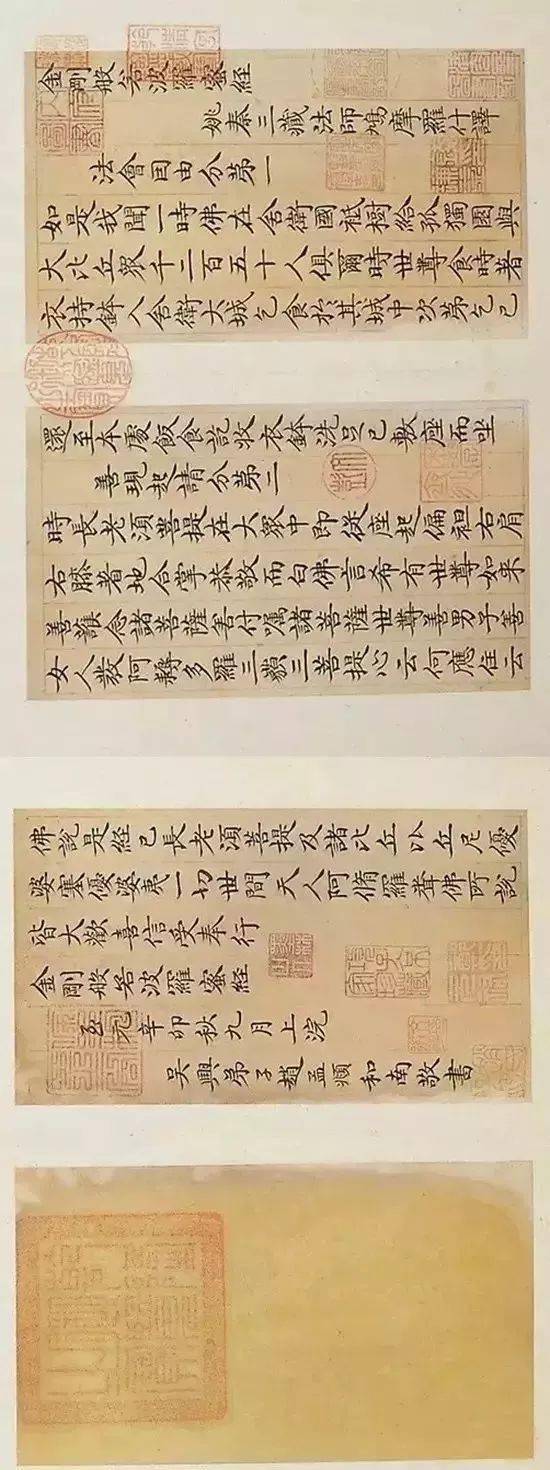 金剛般若波羅蜜経
姚秦三藏法師鳩摩羅什譯
法會因由分第一
如是我聞一時佛在舍衛國祇樹給孤獨園與
大比丘眾千二百五十人俱爾時世尊食時著
衣持鉢入舍衛大城乞食於其城中次第乞已
還至本處飯食訖收衣鉢洗足已敷座而坐
善現起請分第二
時長老須菩提在大眾中即從座起偏袒右肩
右膝著地合掌恭敬而白佛言希有世尊如来
善護念諸菩薩善付囑諸菩薩世尊善男子善
女人發阿耨多羅三藐三菩提心云何應住云
佛說是経已長老須菩提及諸比丘比丘尼優
婆塞優婆夷一切世間天人阿脩羅聞佛所說
皆大歡喜信受奉行
金剛般若波羅蜜経
至元辛卯秋九月上浣
吳興弟子趙孟頫和南敬書